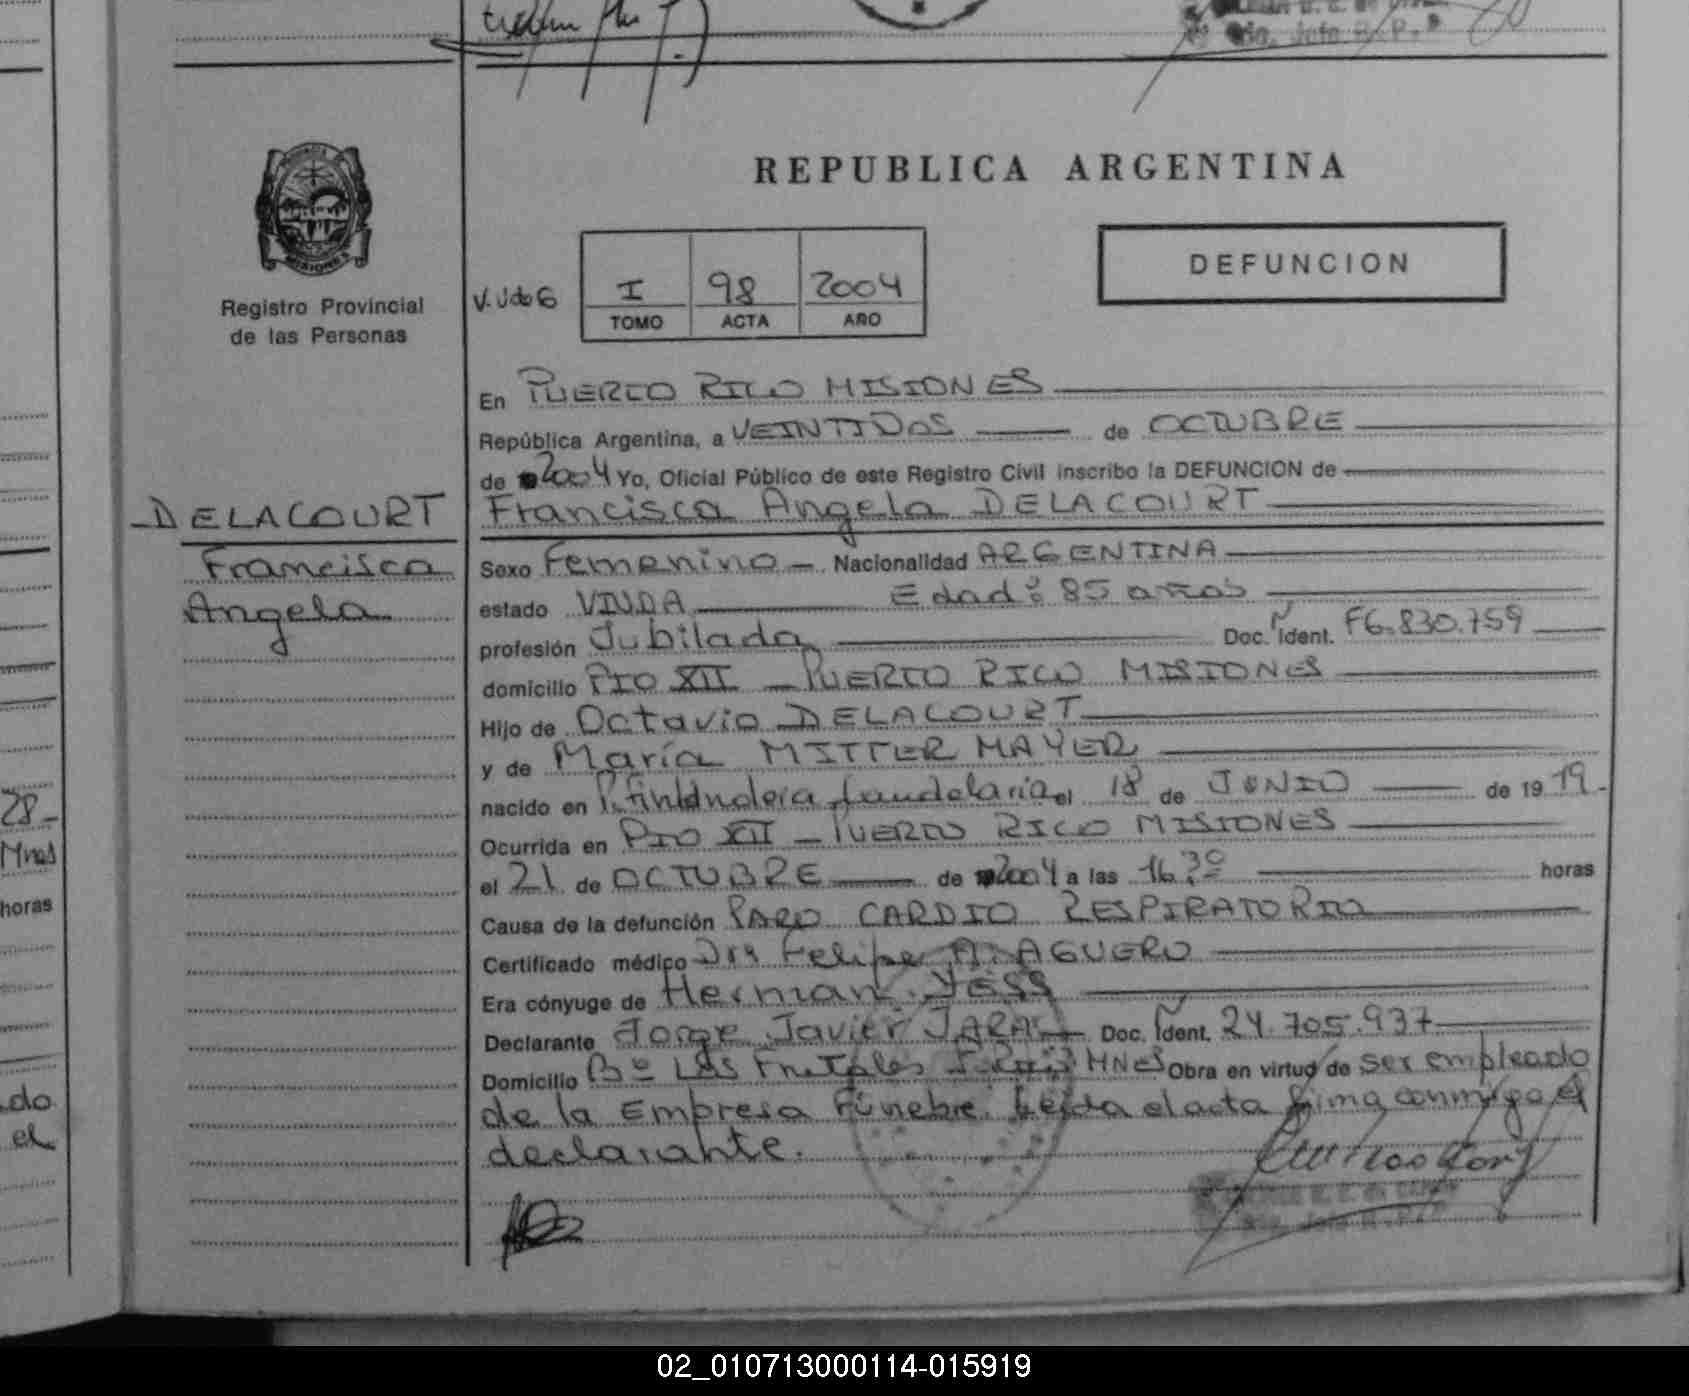 REPUBLICA ARGENTINA
MISIONES
Registro Provincial
de las Personas
I 98 2004
TOMO ACTA AÑO
DEFUNCION
En PUERTO RICO MISIONES
República Argentina, a VEINTIDOS de OCTUBRE
de 2004 Yo, Oficial Público de este Registro Civil inscribo la DEFUNCION de
DELACOURT
Francisca
Angela
Francisca Angela DELACOURT
Sexo Femenino Nacionalidad ARGENTINA
estado VIUDA Edad: 85 años
profesión Jubilada Doc. Ident. F6.830.759
domicilio PIO XII - PUERTO RICO MISIONES
Hijo de Octavio DELACOURT
y de María MITTER MAYER
nacido en Candelaria el 18 de JUNIO de 1919.
Ocurrida en PIO XII - PUERTO RICO MISIONES
el 21 de OCTUBRE de 2004 a las 16:30 horas
Causa de la defunción PARO CARDIO RESPIRATORIO
Certificado médico Dr. Felipe A. AGUERO
Era cónyuge de Herman
Declarante Jorge Javier JARA Doc. Ident. 24.705.937
Domicilio Bº Los Frutales MNES Obra en virtud de ser empleado
de la Empresa Fúnebre. Leída el acta firma conmigo el
declarante.
28-
Mnes
horas
do
el
02_010713000114-015919